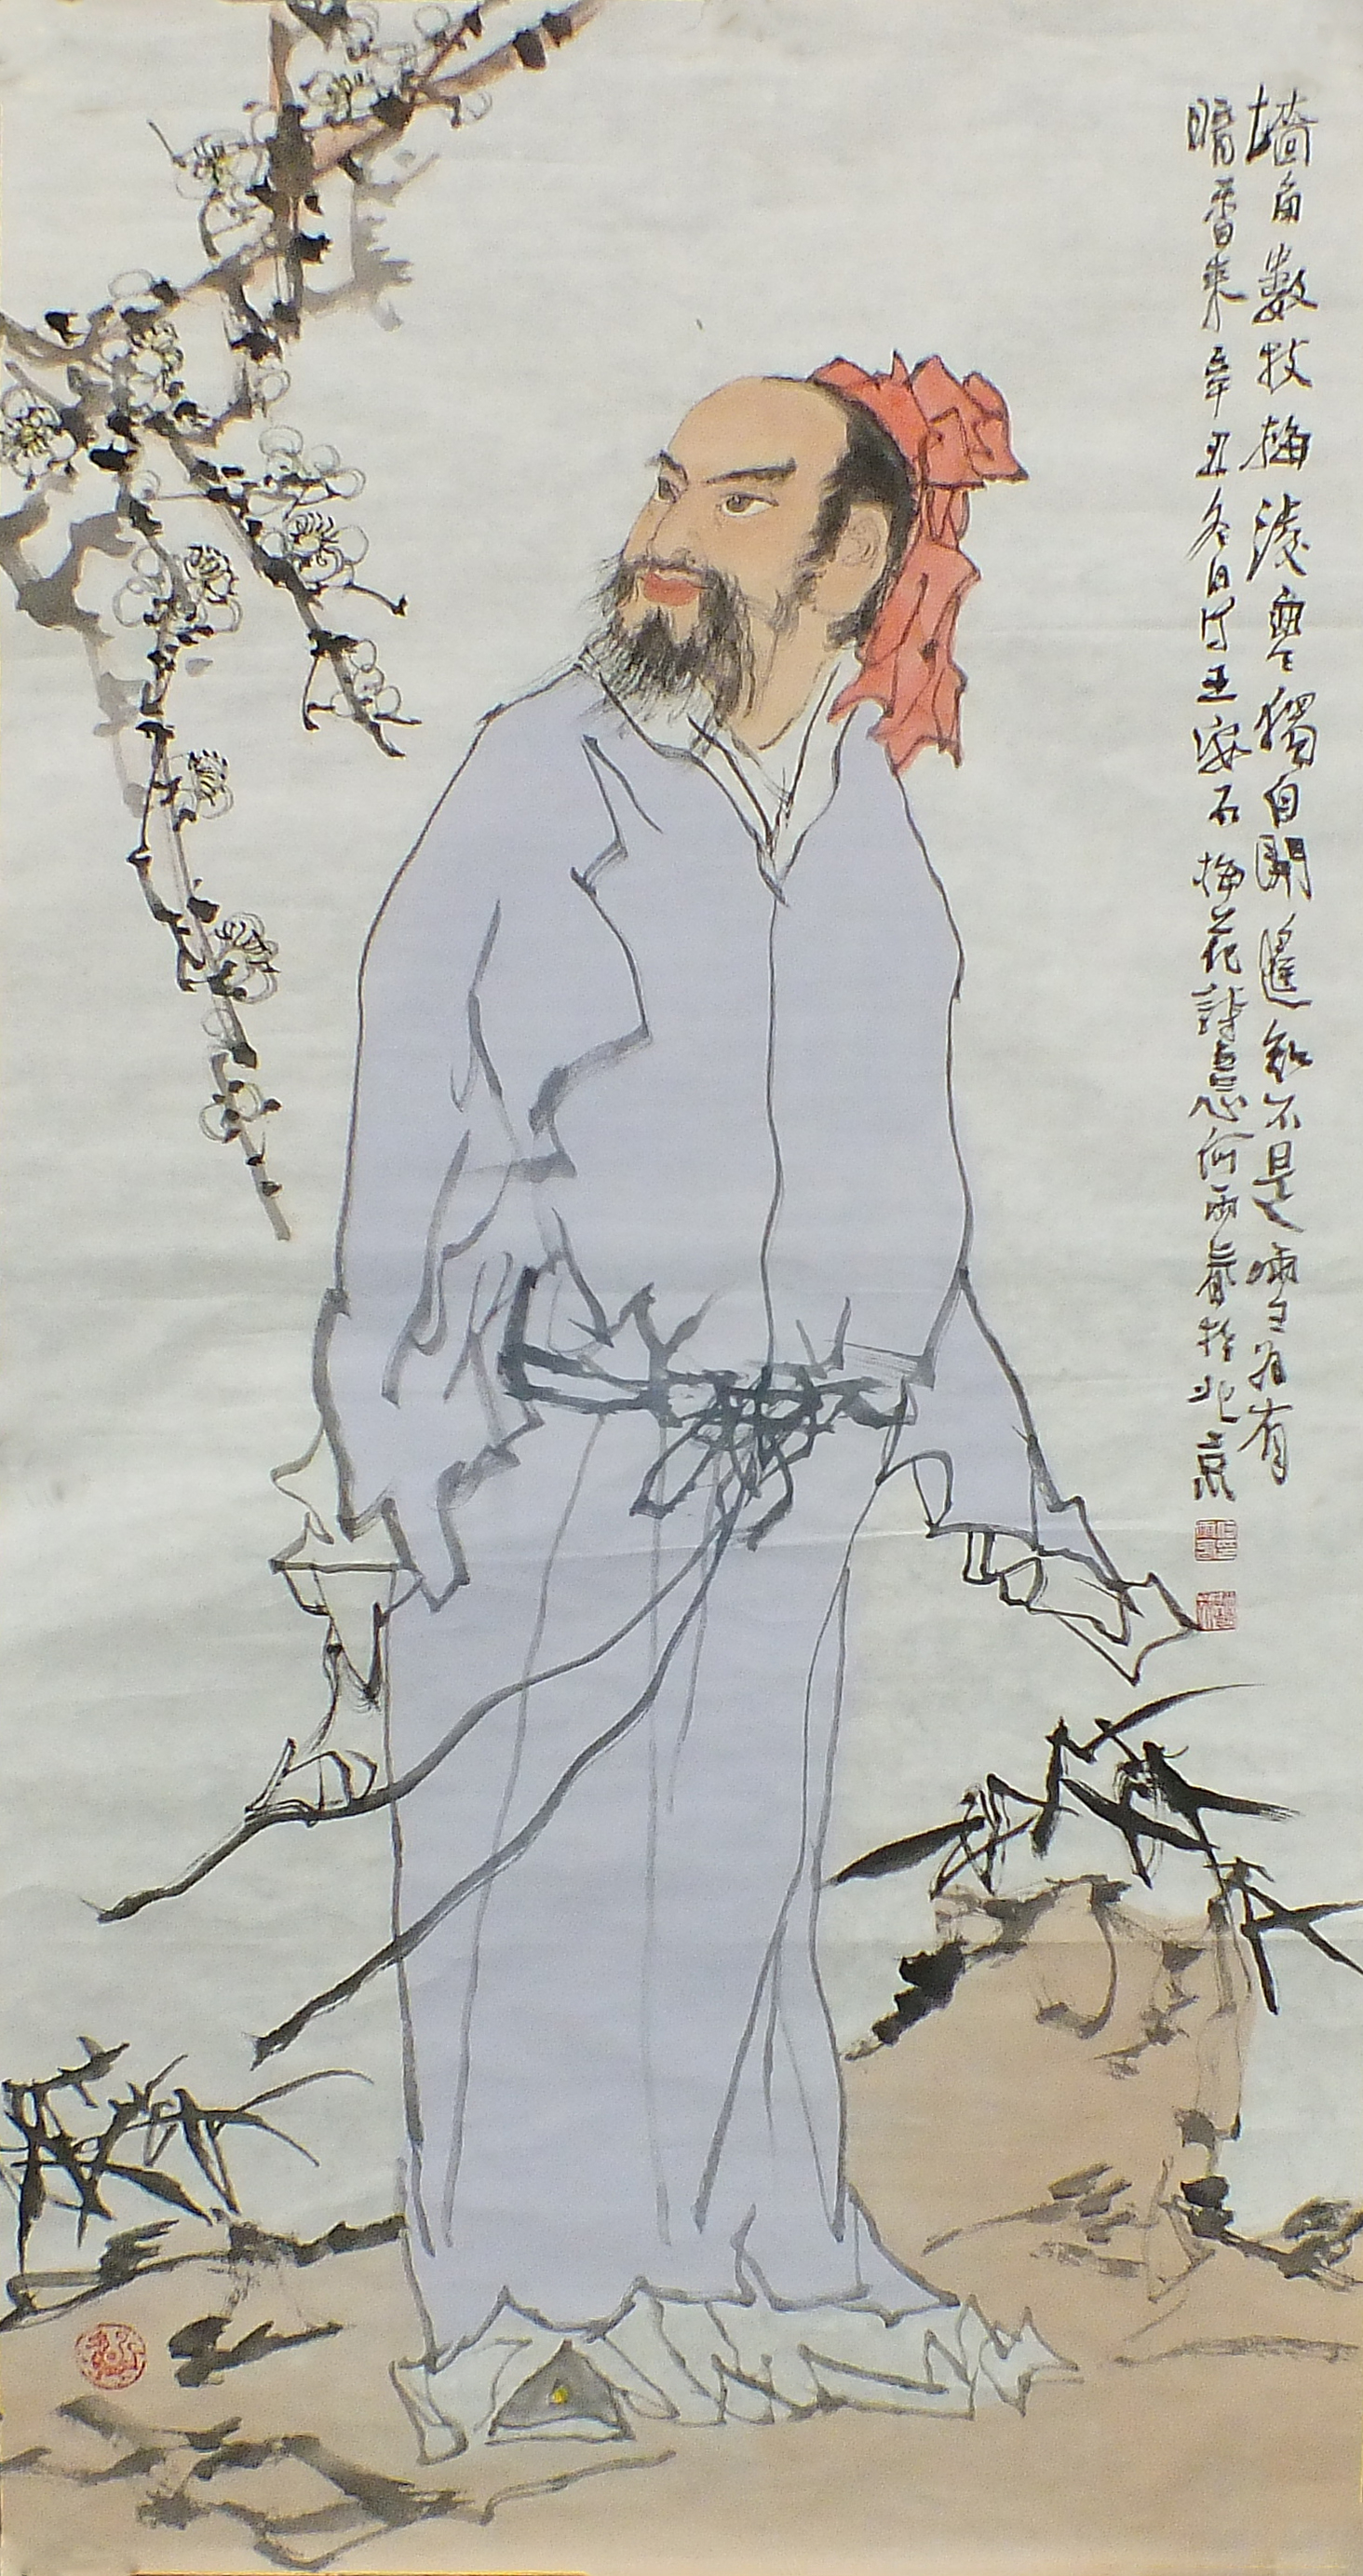 墙角數枝梅凌寒獨自開遥知不是雪为有
暗香来辛丑冬日写王安石梅花詩意何雨春於北京